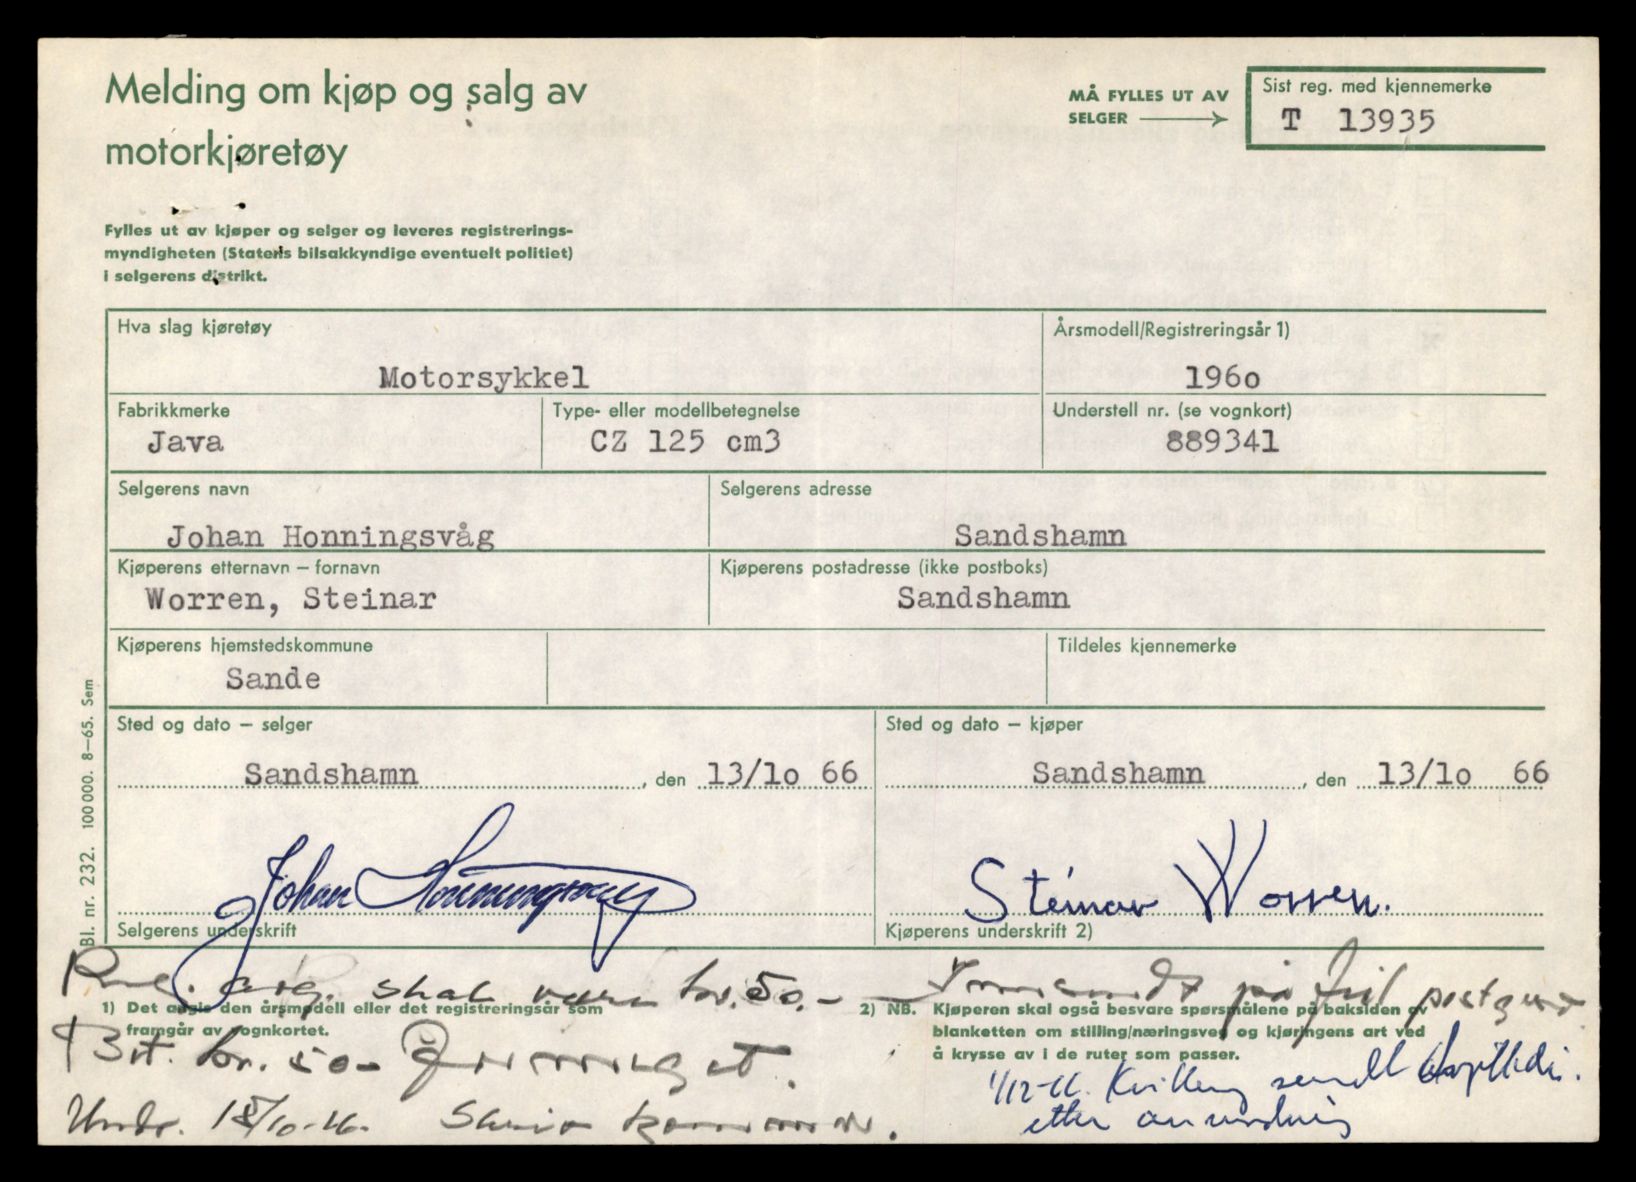 Melding om kjøp og salg av
motorkjøretøy
MÅ FYLLES UT AV
SELGER
Sist reg. med kjennemerke
T 13935
Fylles ut av kjøper og selger og leveres registrerings-
myndigheten (Statens bilsakkyndige eventuelt politiet)
i selgerens distrikt.
Hva slag kjøretøy
Motorsykkel
Årsmodell/Registreringsår 1)
196o
Fabrikkmerke
Java
Type- eller modellbetegnelse
CZ 125 cm3
Understell nr. (se vognkort)
889341
Selgerens navn
Johan Honningsvåg
Selgerens adresse
Sandshamn
Kjøperens etternavn – fornavn
Worren, Steinar
Kjøperens postadresse (ikke postboks)
Sandshamn
Kjøperens hjemstedskommune
Sande
Tildeles kjennemerke
Sted og dato – selger
Sandshamn, den 13/1o 66
Sted og dato – kjøper
Sandshamn, den 13/1o 66
Johan Honningsvåg
Selgerens underskrift
Steinar Worren.
Kjøperens underskrift 2)
Bl. nr. 232. 100 000. 8–65. Sem
avg. skal være kr. 50.- Innsendt på postgiro
1) Det angis den årsmodell eller det registreringsår som
framgår av vognkortet.
2) NB. Kjøperen skal også besvare spørsmålene på baksiden av
blanketten om stilling/næringsvei og kjøringens art ved
å krysse av i de ruter som passer.
kr. 50-
15/10-66.
1/12-66. Kvittering sendt
etter anmodning